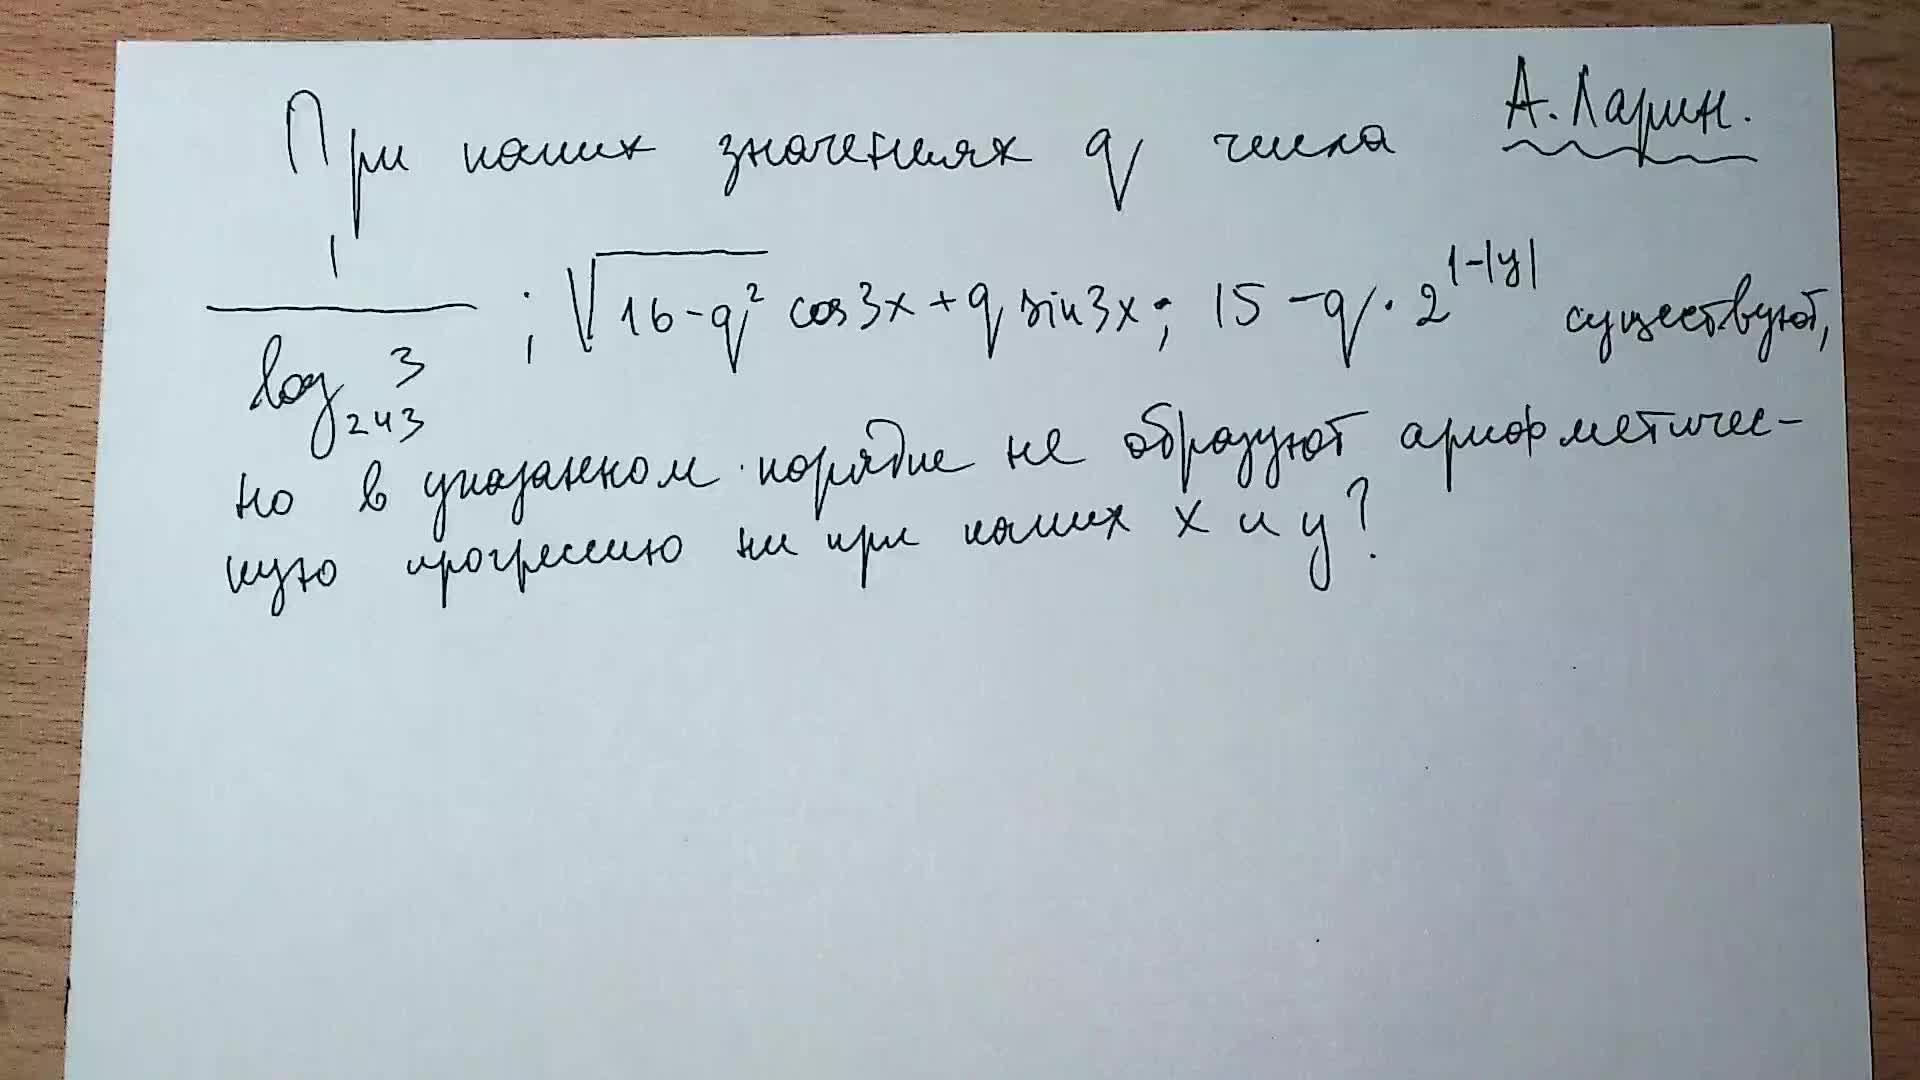 При каких значениях q числа А. Ларин.
1/log₂₄₃ 3 ; √(16-q²) cos3x + q sin3x ; 15 - q · 2^(1-|y|) существуют,
но в указанном порядке не образуют арифметичес-
кую прогрессию ни при каких x и y?